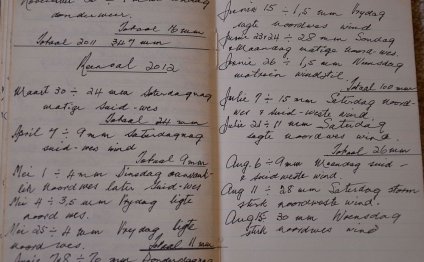 donderweer.
Totaal 16 mm
Totaal 2011 347 mm
Reenval 2012
Maart 30 ÷ 24 mm Saterdagnag
matige suid-wes
Totaal 24 mm
April 7 ÷ 9 mm Saterdagnag
suid-wes wind
Totaal 9 mm
Mei 1 ÷ 4 mm Dinsdag
noordwes later suid-wes
Mei 4 ÷ 3,5 mm Vrydag ligte
noord wes.
Mei 25 ÷ 4 mm Vrydag ligte
noord wes. Totaal 11 mm
Junie 15 ÷ 1,5 mm Vrydag
sagte noordwes wind
Junie 23+24 ÷ 28 mm Sondag
+ Maandag matige noord-wes.
Junie 26 ÷ 1,5 mm Woensdag
motreën windstil.
Totaal 100 mm
Julie 7 ÷ 15 mm Saterdag noord-
wes + suidweste wind.
Julie 21 ÷ 11 mm Saterdag
sagte noordwes wind
Totaal 26 mm
Aug. 6 ÷ 9 mm Maandag suid-
+ suidweste wind.
Aug 11 ÷ 28 mm Saterdag storm
sterk noordweste wind.
Aug 15 30 mm Woensdag
sterk noordwes wind